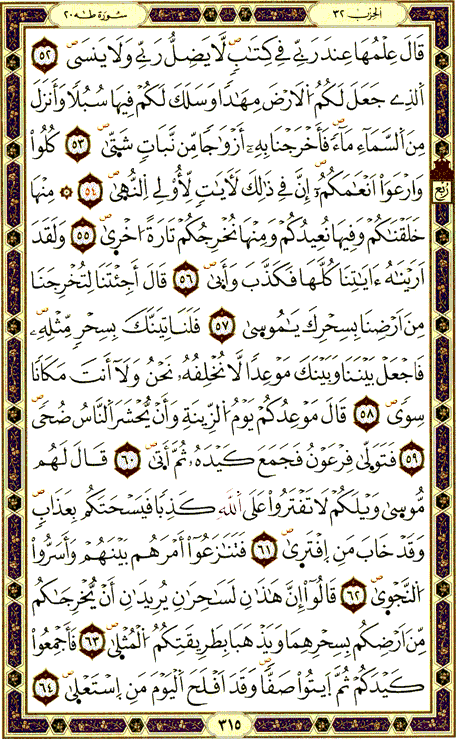 الحزب ٣٢
سورة طه ٢٠
قَالَ عِلْمُهَا عِندَ رَبِّے فِے كِتَٰبٖۖ لَّا يَضِلُّ رَبِّے وَلَا يَنسَىۖ ٥٢
اَ۬لذِے جَعَلَ لَكُمُ اُ۬لَارْضَ مِهَٰداٗ وَسَلَكَ لَكُمْ فِيهَا سُبُلاٗ وَأَنزَلَ
مِنَ اَ۬لسَّمَآءِ مَآءٗۖ فَأَخْرَجْنَا بِهِۦٓ أَزْوَٰجاٗ مِّن نَّبَاتٖ شَتَّىٰۖ ٥٣ كُلُواْ
وَارْعَوَاْ اَنْعَٰمَكُمُۥٓۖ إِنَّ فِے ذَٰلِكَ لَأٓيَٰتٖ لِّأُوْلِے اِ۬لنُّهَىٰۖ ٥٤ ۞ مِنْهَا
ربع
خَلَقْنَٰكُمْ وَفِيهَا نُعِيدُكُمْ وَمِنْهَا نُخْرِجُكُمْ تَارَةً اُخْر۪ىٰۖ ٥٥ وَلَقَدَ
اَرَيْنَٰهُ ءَايَٰتِنَا كُلَّهَا فَكَذَّبَ وَأَبَىٰۖ ٥٦ قَالَ أَجِئْتَنَا لِتُخْرِجَنَا
مِنَ اَرْضِنَا بِسِحْرِكَ يَٰمُوس۪ىٰۖ ٥٧ فَلَنَاتِيَنَّكَ بِسِحْرٖ مِّثْلِهِۦۖ
فَاجْعَلْ بَيْنَنَا وَبَيْنَكَ مَوْعِداٗ لَّا نُخْلِفُهُۥ نَحْنُ وَلَآ أَنتَ مَكَاناٗ
سِوىٗۖ ٥٨ قَالَ مَوْعِدُكُمْ يَوْمُ اُ۬لزِّينَةِ وَأَنْ يُّحْشَرَ اَ۬لنَّاسُ ضُحىٗۖ
٥٩ فَتَوَلّ۪ىٰ فِرْعَوْنُ فَجَمَعَ كَيْدَهُۥ ثُمَّ أَت۪ىٰۖ ٦٠ قَالَ لَهُم
مُّوس۪ىٰ وَيْلَكُمْ لَا تَفْتَرُواْ عَلَى اَ۬للَّهِ كَذِباٗ فَيَسْحَتَكُم بِعَذَابٖۖ
وَقَدْ خَابَ مَنِ اِ۪فْتَر۪ىٰۖ ٦١ فَتَنَٰزَعُوٓاْ أَمْرَهُم بَيْنَهُمْ وَأَسَرُّواْ
اُ۬لنَّجْو۪ىٰۖ ٦٢ قَالُوٓاْ إِنَّ هَٰذَٰنِ لَسَٰحِرَٰنِ يُرِيدَٰنِ أَنْ يُّخْرِجَٰكُم
مِّنَ اَرْضِكُم بِسِحْرِهِمَا وَيَذْهَبَا بِطَرِيقَتِكُمُ اُ۬لْمُثْل۪ىٰۖ ٦٣ فَأَجْمِعُواْ
كَيْدَكُمْ ثُمَّ اَ۪يتُواْ صَفّاٗۖ وَقَدَ اَفْلَحَ اَ۬لْيَوْمَ مَنِ اِ۪سْتَعْل۪ىٰۖ ٦٤
٣١٥